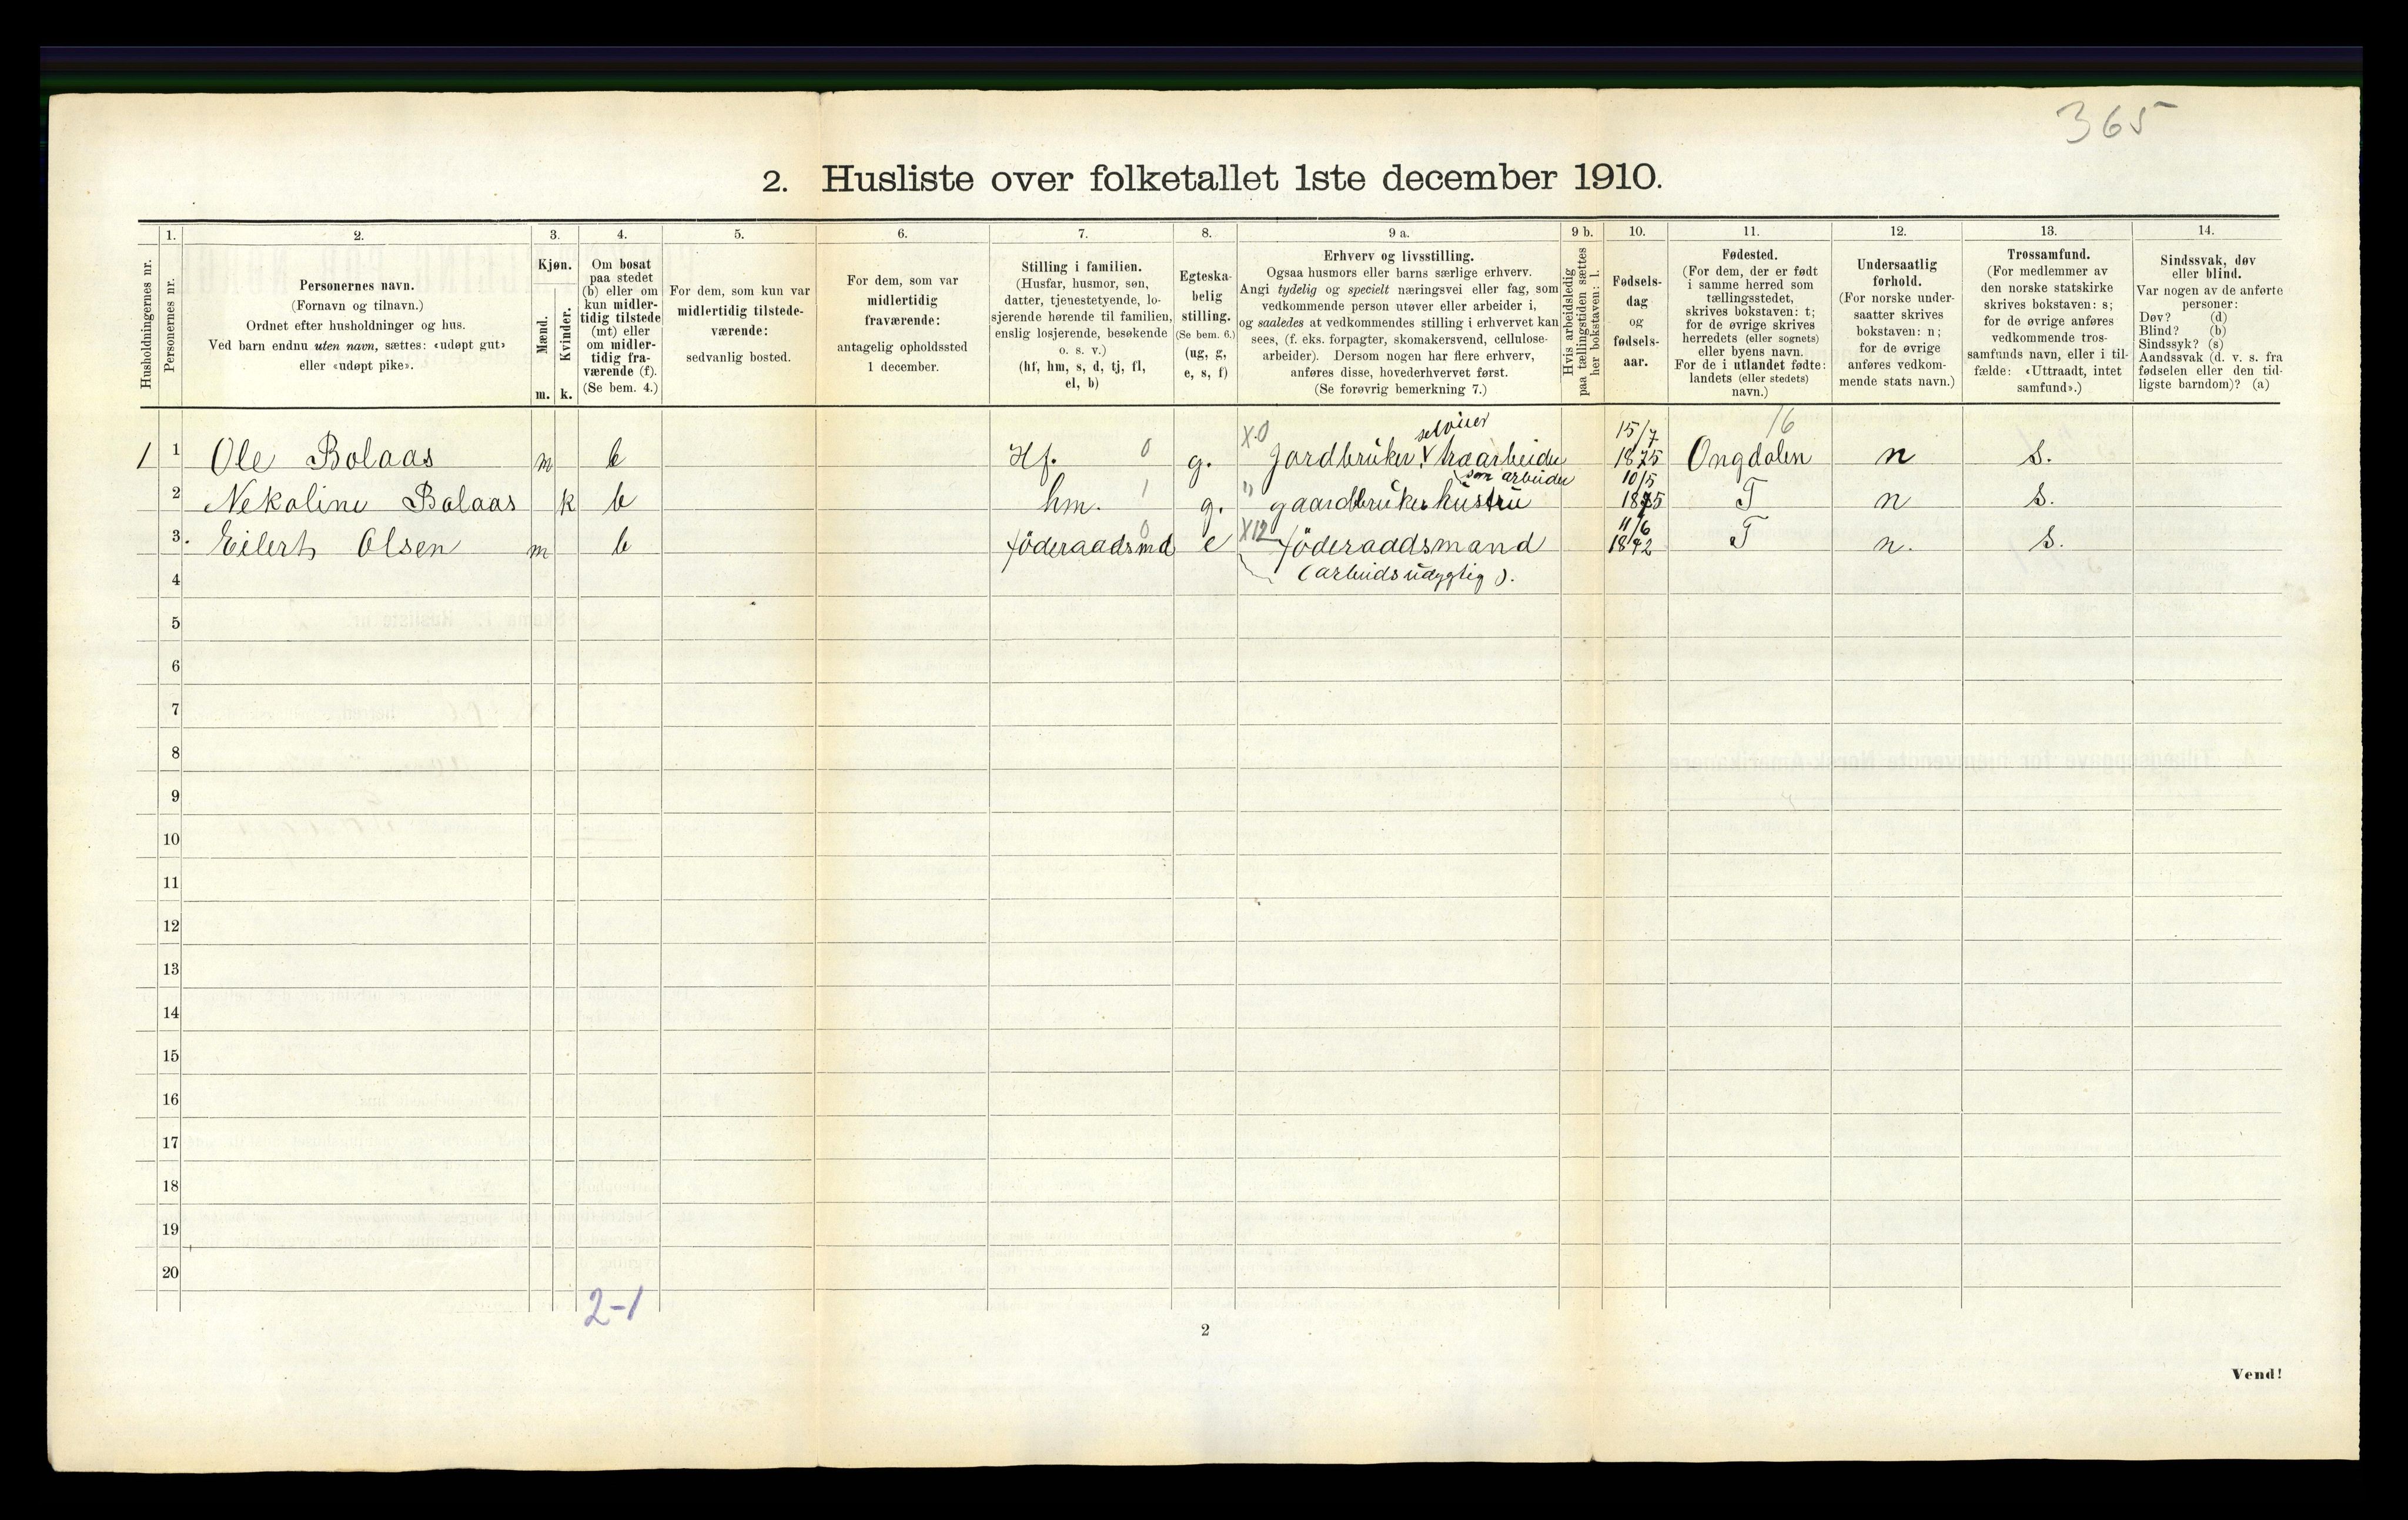 365
2. Husliste over folketallet 1ste december 1910.
Husholdningernes nr.
1.
Personernes nr.
2.
Personernes navn.
(Fornavn og tilnavn.)
Ordnet efter husholdninger og hus.
Ved barn endnu uten navn, sættes: «udøpt gut»
eller «udøpt pike».
3.
Kjøn.
Mænd.
m.
Kvinder.
k.
4.
Om bosat
paa stedet
(b) eller om
kun midler-
tidig tilstede
(mt) eller
om midler-
tidig fra-
værende (f).
(Se bem. 4.)
5.
For dem, som kun var
midlertidig tilstede-
værende:
sedvanlig bosted.
6.
For dem, som var
midlertidig
fraværende:
antagelig opholdssted
1 december.
7.
Stilling i familien.
(Husfar, husmor, søn,
datter, tjenestetyende, lo-
sjerende hørende til familien,
enslig losjerende, besøkende
o. s. v.)
(hf, hm, s, d, tj, fl,
el, b)
8.
Egteska-
belig
stilling.
(Se bem. 6.)
(ug, g,
e, s, f)
9 a.
Erhverv og livsstilling.
Ogsaa husmors eller barns særlige erhverv.
Angi tydelig og specielt næringsvei eller fag, som
vedkommende person utøver eller arbeider i,
og saaledes at vedkommendes stilling i erhvervet kan
sees, (f. eks. forpagter, skomakersvend, cellulose-
arbeider). Dersom nogen har flere erhverv,
anføres disse, hovederhvervet først.
(Se forøvrig bemerkning 7.)
9 b.
Hvis arbeidsledig
paa tællingstiden sættes
her bokstaven: l.
10.
Fødsels-
dag
og
fødsels-
aar.
11.
Fødested.
(For dem, der er født
i samme herred som
tællingsstedet,
skrives bokstaven: t;
for de øvrige skrives
herredets (eller sognets)
eller byens navn.
For de i utlandet fødte:
landets (eller stedets)
navn.)
12.
Undersaatlig
forhold.
(For norske under-
saatter skrives
bokstaven: n;
for de øvrige
anføres vedkom-
mende stats navn.)
13.
Trossamfund.
(For medlemmer av
den norske statskirke
skrives bokstaven: s;
for de øvrige anføres
vedkommende tros-
samfunds navn, eller i til-
fælde: «Uttraadt, intet
samfund».)
14.
Sindssvak, døv
eller blind.
Var nogen av de anførte
personer:
Døv? (d)
Blind? (b)
Sindssyk? (s)
Aandssvak (d. v. s. fra
fødselen eller den tid-
ligste barndom)? (a)
selveier 15/7 16
1 1 Ole Bolaas m b Hf. 0 g. X.0 Jordbruker, træarbeider 1875 Ongdalen n s.
som arbeider 10/5
2 Nekoline Bolaas k b hm. 1 g. " gaardbruker hustru 1875 T n s.
11/6
3. Eilert Olsen m b föderaadsmd 0 e X12 föderaadsmand 1842 T n. s.
4 (arbeidsudygtig).
5
6
7
8
9
10
11
12
13
14
15
16
17
18
19
20
2-1
2
Vend!